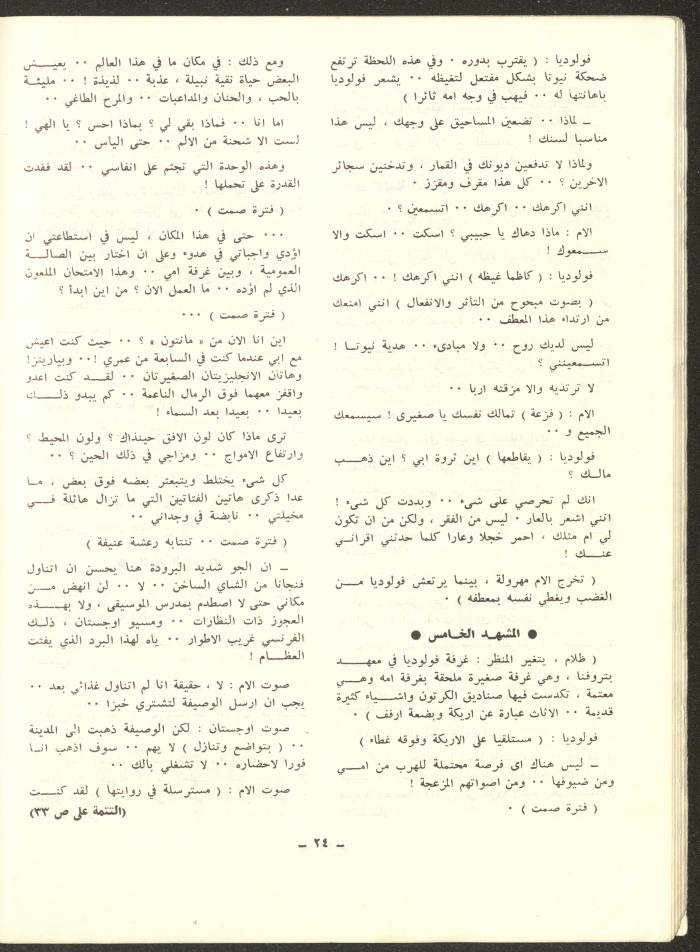 فولوديا : ( يقترب بدوره ٠ وفي هذه اللحظة ترتفع
ضحكة نيوتا بشكل مفتعل لتغيظه ٠٠ يشعر فولوديا
باهانتها له ٠٠ فيهب في وجه امه ثائرا )
ــ لماذا ٠٠ تضعين المساحيق على وجهك ، ليس هذا
مناسبا لسنك !
ولماذا لا تدفعين ديونك في القمار ، وتدخنين سجائر
الاخرين ؟ ٠٠ كل هذا مقرف ومقزز ٠
انني اكرهك ٠٠ اكرهك ٠٠ اتسمعين ؟ ٠
الام : ماذا دهاك يا حبيبي ؟ اسكت ٠٠ اسكت والا
ســـمعوك !
فولوديا : ( كاظما غيظه ) انني اكرهك ! ٠٠ اكرهك
( بصوت مبحوح من التأثر والانفعال ) انني امنعك
من ارتداء هذا المعطف ٠٠
ليس لديك روح ٠٠ ولا مبادىء ٠٠ هدية نيوتـا !
اتســـمعينني ؟
لا ترتديه والا مزقته اربا ٠٠
الام : ( فزعة ) تمالك نفسك يا صغيرى ! سيسمعك
الجميع و ٠٠
فولوديا : ( يقاطعها ) اين ثروة ابي ؟ اين ذهـــب
مالـــك ؟
انك لم تحرصي على شىء ٠٠ وبددت كل شىء !
انني اشعر بالعار ٠ ليس من الفقر ، ولكن من ان تكون
لي ام مثلك ، احمر خجلا وعارا كلما حدثني اقرانـي
عنـــك !
( تخرج الام مهرولة ، بينما يرتعش فولوديا مـــن
الغضب ويغطي نفسه بمعطفه ) ٠
● المشهـد الخـامس ●
( ظلام ، يتغير المنظر : غرفة فولوديا في معهـــد
بتروفنا ، وهي غرفة صغيرة ملحقة بغرفة امه وهـــي
معتمة ، تكدست فيها صناديق الكرتون واشــياء كثيرة
قديمة ٠٠ الاثاث عبارة عن اريكة وبضعة ارفف ) ٠
فولوديا : ( مستلقيا على الاريكة وفوقه غطاء )
ــ ليس هناك اى فرصة محتملة للهرب من امـــي
ومن ضيوفها ٠٠ ومن اصواتهم المزعجة !
( فترة صمت ) ٠
ومع ذلك : في مكان ما في هذا العالم ٠٠ يعيـــش
البعض حياة نقية نبيلة ، عذبة ٠٠ لذيذة ! ٠٠ مليئـة
بالحب ، والحنان والمداعبات ٠٠ والمرح الطاغي ٠٠
اما انا ٠٠ فماذا بقي لي ؟ بماذا احس ؟ يا الهي !
لست الا شحنة من الالم ٠٠ حتى الياس ٠٠
وهذه الوحدة التي تجثم على انفاسي ٠٠ لقد فقدت
القدرة على تحملها !
( فترة صمت ) ٠
٠٠٠ حتى في هذا المكان ، ليس في استطاعتي ان
اؤدي واجباتي في هدوء وعلى ان اختار بين الصالــة
العمومية ، وبين غرفة امي ٠٠ وهذا الامتحان الملعون
الذي لم اؤده ٠٠ ما العمل الان ؟ من اين ابدأ ؟
( فترة صمت ) ٠٠٠
اين انا الان من « مانتون » ؟ ٠٠ حيث كنت اعيش
مع ابي عندما كنت في السابعة من عمري !٠٠ وبياريتز!
وهاتان الانجليزيتان الصغيرتان ٠٠ لقـــد كنت اعدو
واقفز معهما فوق الرمال الناعمة ٠٠ كم يبدو ذلــــك
بعيدا ٠٠ بعيدا بعد السماء !
ترى ماذا كان لون الافق حينذاك ؟ ولون المحيط ؟
وارتفاع الامواج ٠٠ ومزاجي في ذلك الحين ؟ ٠٠
كل شىء يختلط ويتبعثر بعضه فوق بعض ، مـا
عدا ذكرى هاتين الفتاتين التي ما تزال هائلة فـــي
مخيلتي ٠٠ نابضة في وجداني ٠٠
( فترة صمت ٠٠ تنتابه رعشة عنيفة )
ــ ان الجو شديد البرودة هنا يحسن ان اتناول
فنجانا من الشاي الساخن ٠٠ لا ٠٠ لن انهض مـــن
مكاني حتى لا اصطدم بمدرس الموسيقى ، ولا بهـــذه
العجوز ذات النظارات ٠٠ ومسيو اوجستان ، ذلــك
الفرنسي غريب الاطوار ٠٠ ياه لهذا البرد الذي يفتت
العظـــام !
صوت الام : لا ، حقيقة انا لم اتناول غذائي بعد ٠٠
يجب ان ارسل الوصيفة لتشتري خبزا ٠٠
صوت اوجستان : لكن الوصيفة ذهبت الى المدينة
٠٠ ( بتواضع وتنازل ) لا يهم ٠٠ سوف اذهب انـا
فورا لاحضاره ٠٠ لا تشغلي بالك ٠٠
صوت الام : ( مسترسلة في روايتها ) لقد كنـــت
(التتمة على ص ٣٣)
ــ ٢٤ ــ